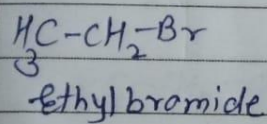 H₃C-CH₂-Br
Ethyl bromide